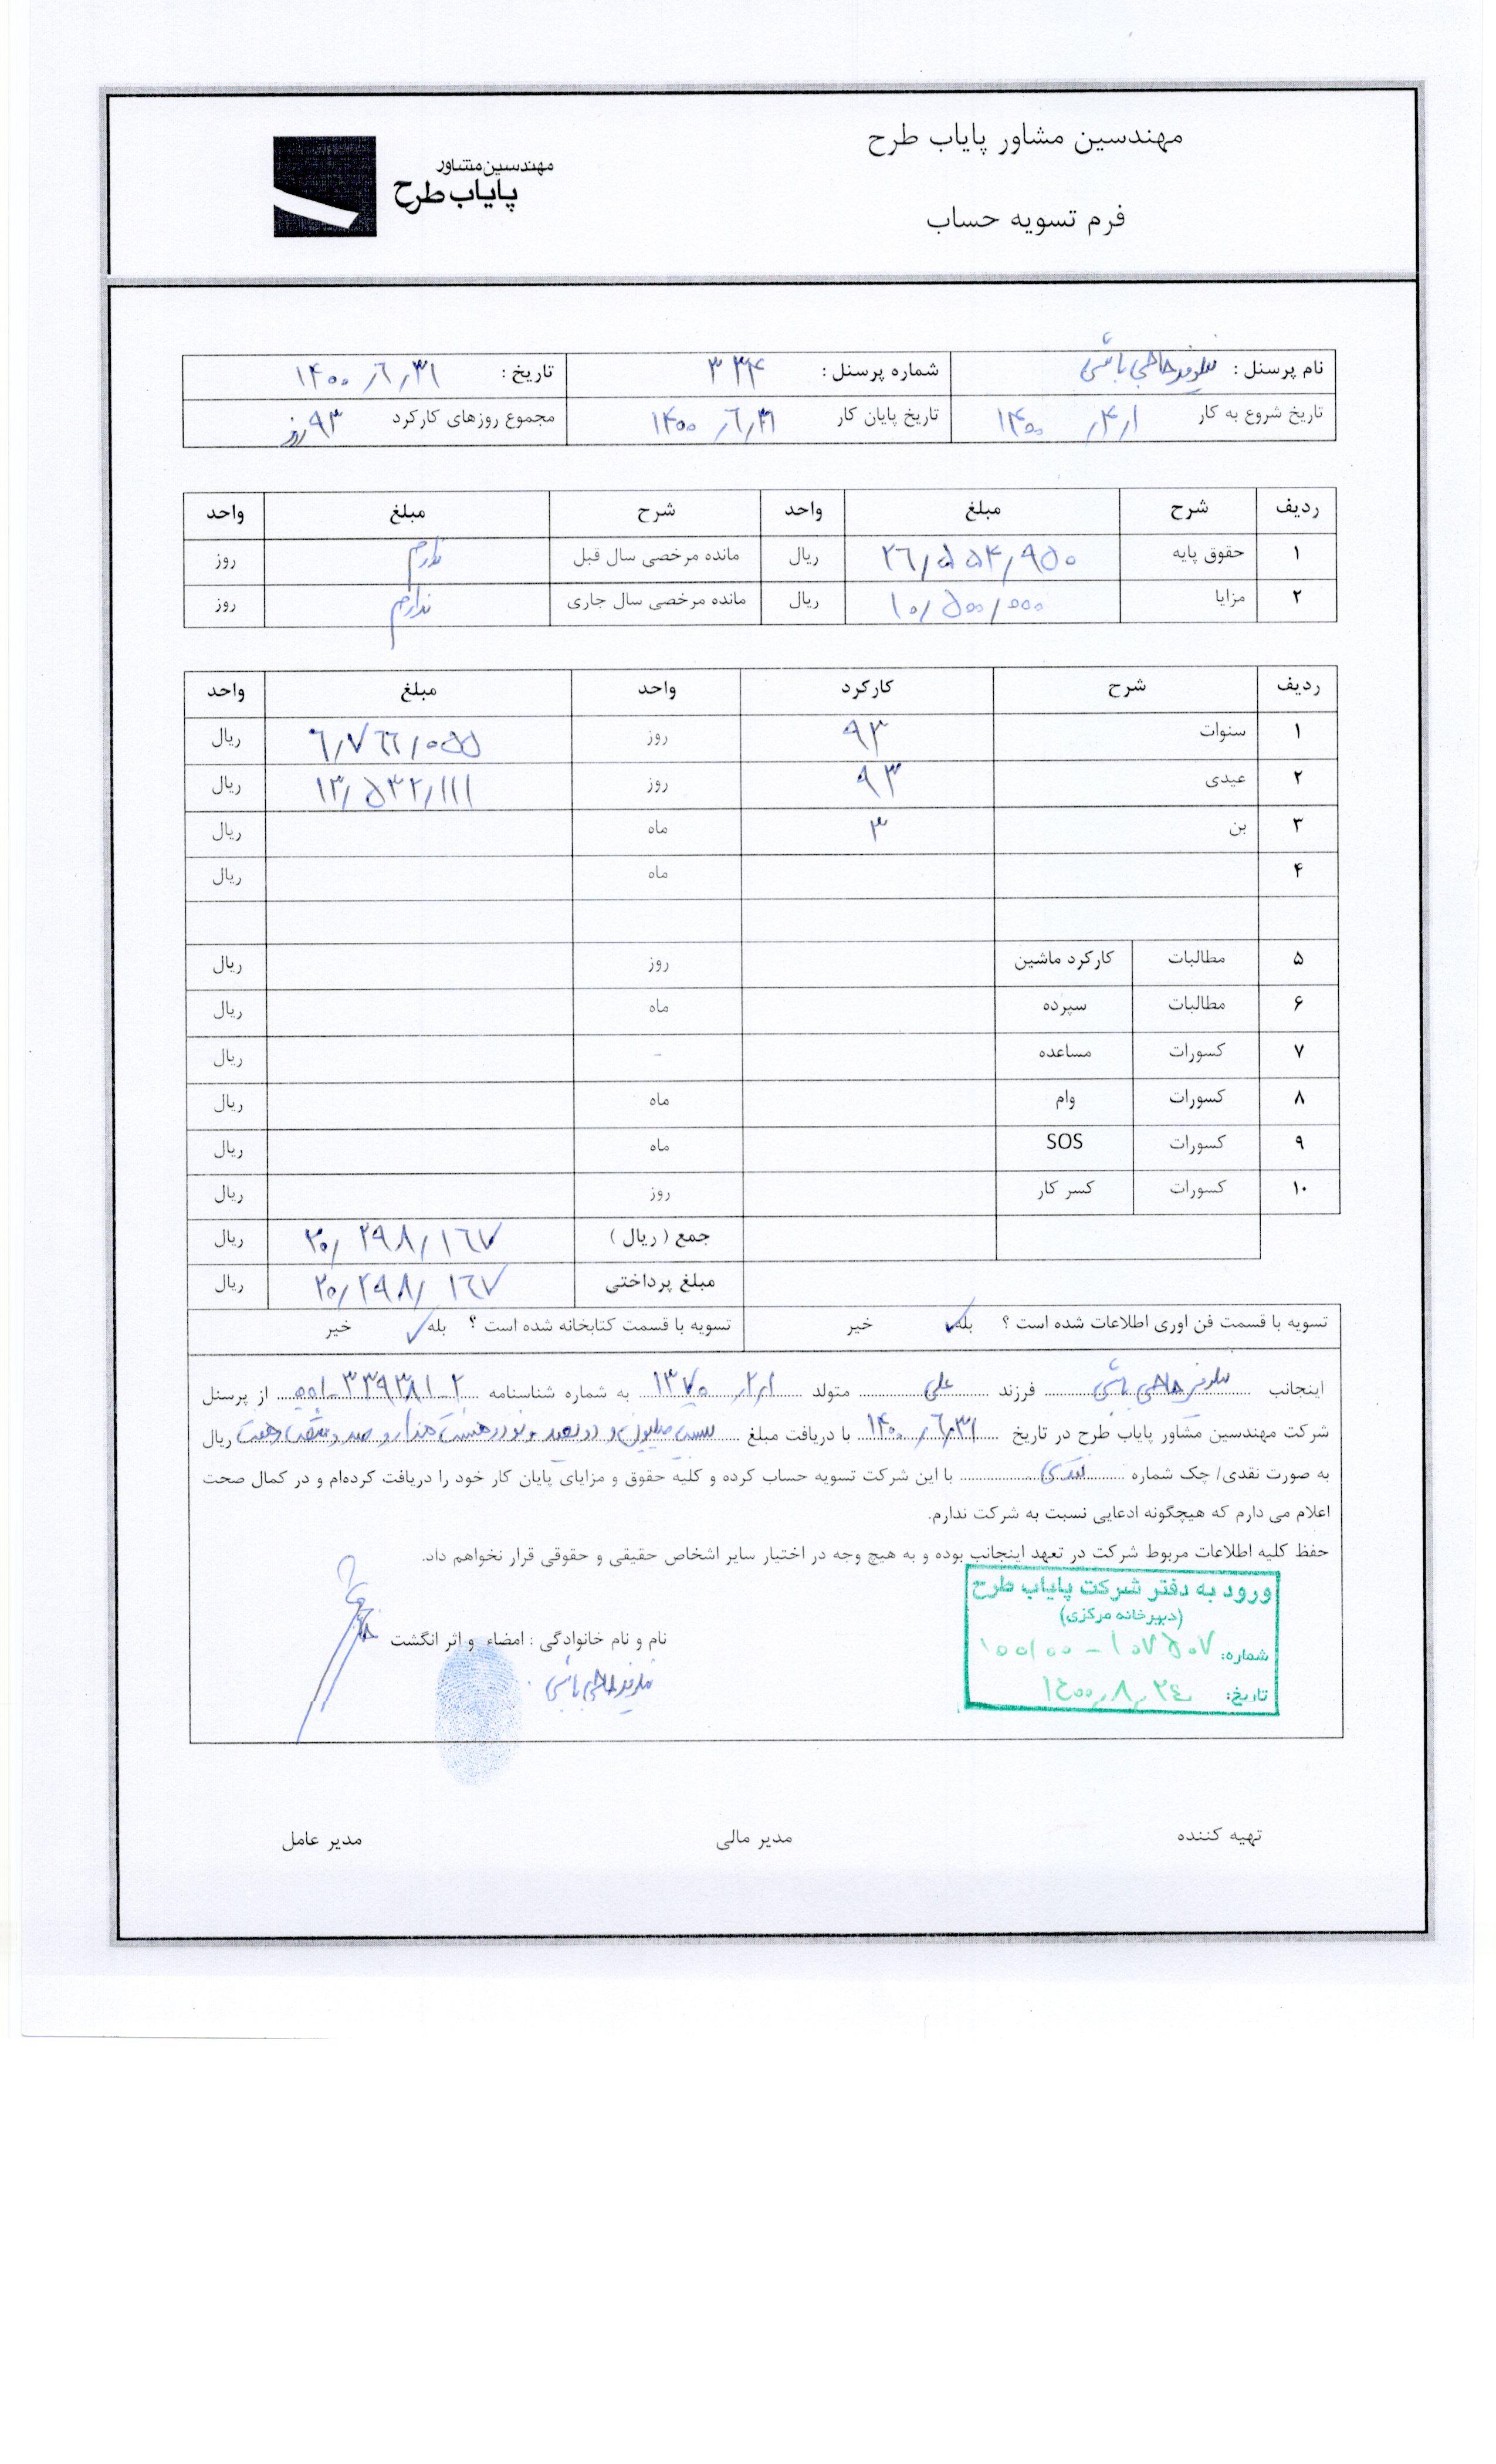 مهندسین مشاور پایاب طرح
مهندسین مشاور
پایاب طرح
فرم تسویه حساب
نام پرسنل : نیلوفر حاجی باشی شماره پرسنل : ۳۳۴ تاریخ : ۱۴۰۰/۶/۳۱
تاریخ شروع به کار ۱۴۰۰/۴/۱ تاریخ پایان کار ۱۴۰۰/۶/۳۱ مجموع روزهای کارکرد ۹۳ روز
ردیف شرح مبلغ واحد شرح مبلغ واحد
۱ حقوق پایه ۲۶/۵۵۴/۹۵۰ ریال مانده مرخصی سال قبل ندارم روز
۲ مزایا ۱۰/۵۰۰/۰۰۰ ریال مانده مرخصی سال جاری ندارم روز
ردیف شرح کارکرد واحد مبلغ واحد
۱ سنوات ۹۳ روز ۶/۷۶۶/۰۵۵ ریال
۲ عیدی ۹۳ روز ۱۳/۵۳۲/۱۱۱ ریال
۳ بن ۳ ماه ریال
۴ ماه ریال
۵ مطالبات کارکرد ماشین روز ریال
۶ مطالبات سپرده ماه ریال
۷ کسورات مساعده - ریال
۸ کسورات وام ماه ریال
۹ کسورات SOS ماه ریال
۱۰ کسورات کسر کار روز ریال
جمع ( ریال ) ۲۰/۲۹۸/۱۶۷ ریال
مبلغ پرداختی ۲۰/۲۹۸/۱۶۷ ریال
تسویه با قسمت فن اوری اطلاعات شده است ؟ بله ✓ خیر تسویه با قسمت کتابخانه شده است ؟ بله ✓ خیر
اینجانب نیلوفر حاجی باشی فرزند علی متولد ۱۳۷۰/۲/۱ به شماره شناسنامه ۰۰۱-۳۳۹۳۸۱-۲ از پرسنل
شرکت مهندسین مشاور پایاب طرح در تاریخ ۱۴۰۰/۶/۳۱ با دریافت مبلغ بیست میلیون و دویست و نود و هشت هزار و صد و شصت و هفت ریال
به صورت نقدی/ چک شماره نقدی با این شرکت تسویه حساب کرده و کلیه حقوق و مزایای پایان کار خود را دریافت کرده‌ام و در کمال صحت
اعلام می دارم که هیچگونه ادعایی نسبت به شرکت ندارم.
حفظ کلیه اطلاعات مربوط شرکت در تعهد اینجانب بوده و به هیچ وجه در اختیار سایر اشخاص حقیقی و حقوقی قرار نخواهم داد.
ورود به دفتر شرکت پایاب طرح
(دبیرخانه مرکزی)
شماره: ۱۰۰/۰۰-۱۰۷۵۰۷
تاریخ: ۱۴۰۰/۸/۲۴
نام و نام خانوادگی : امضاء و اثر انگشت
نیلوفر حاجی باشی
تهیه کننده مدیر مالی مدیر عامل